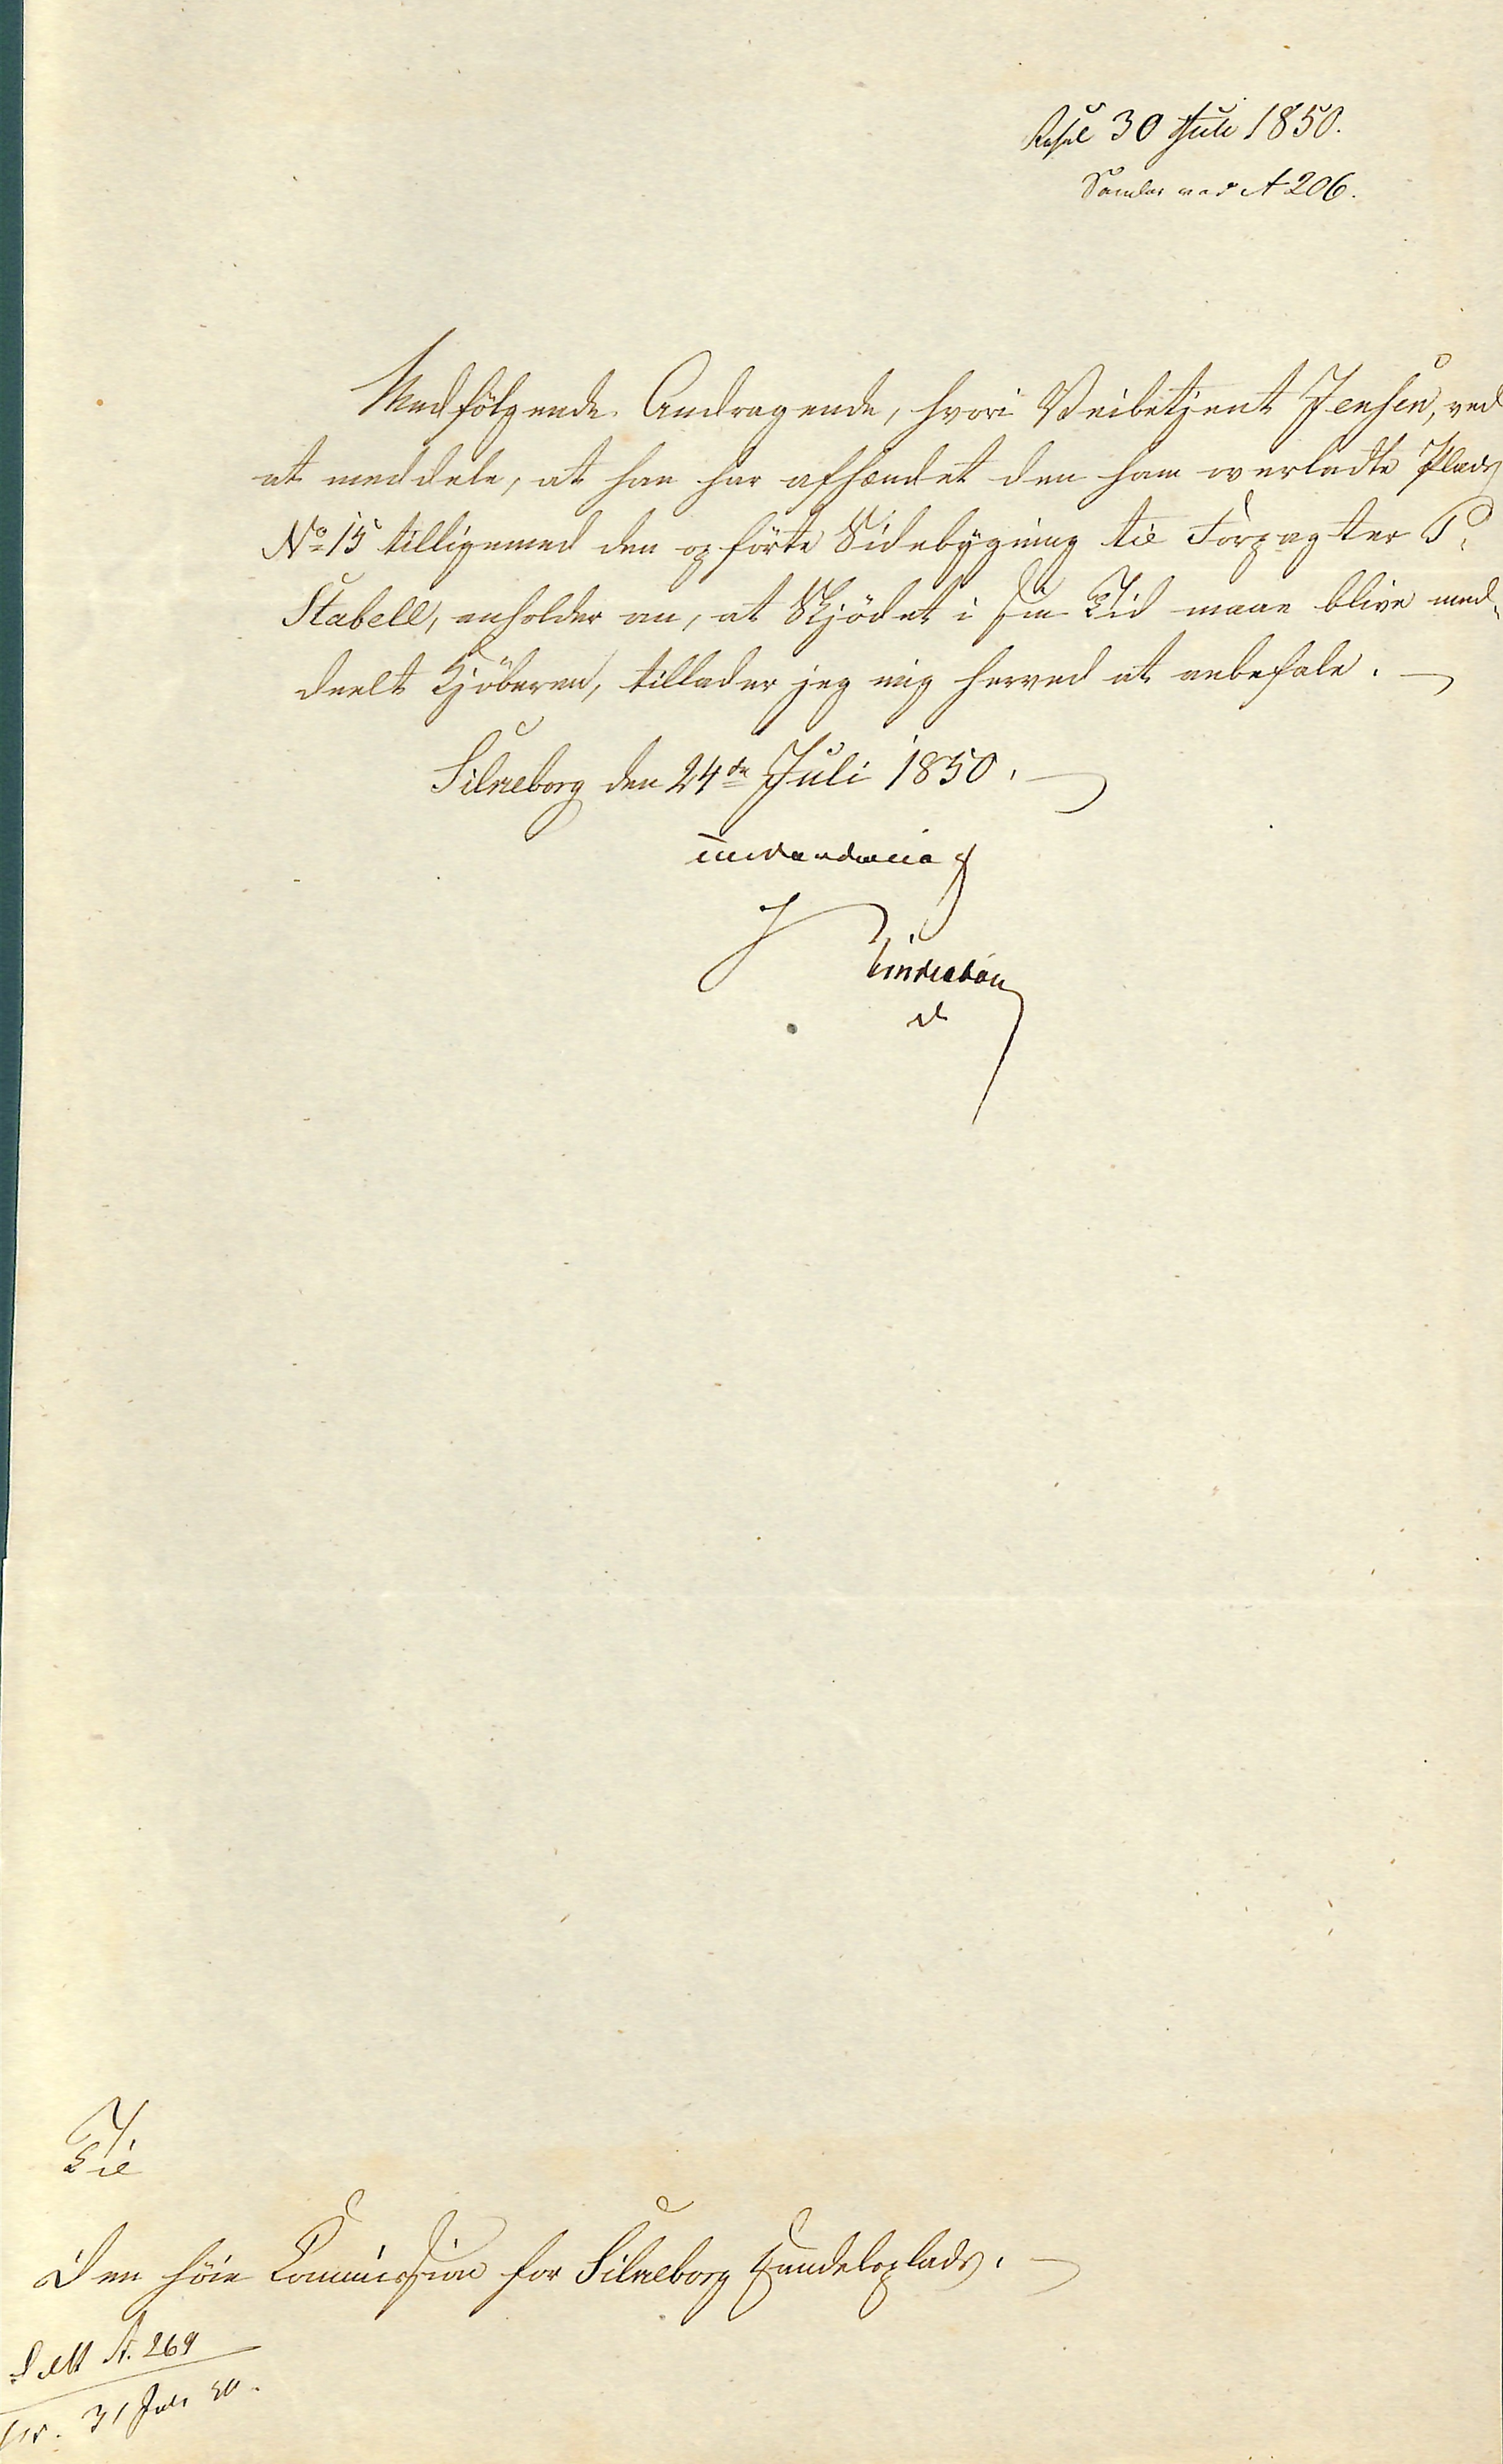 Resol 30 Juli 1850.
Samles ved A 206.
Medfölgende Andragende, hvori Veibetjent Jensen, ved
at meddele, at han har afhændet den ham overladte Plads
No 15 tilligemed den opförte Sidebygning til Forpagter P.
Stabell, anholder om, at Skjödet i sin Tid maae blive med-
deelt Kjöberen, tillader jeg mig herved at anbefale.
Silkeborg den 24de Juli 1850.
underdanig
Til
Den höie Commission for Silkeborg Handelsplads.
A. 269
31 Juli 50.